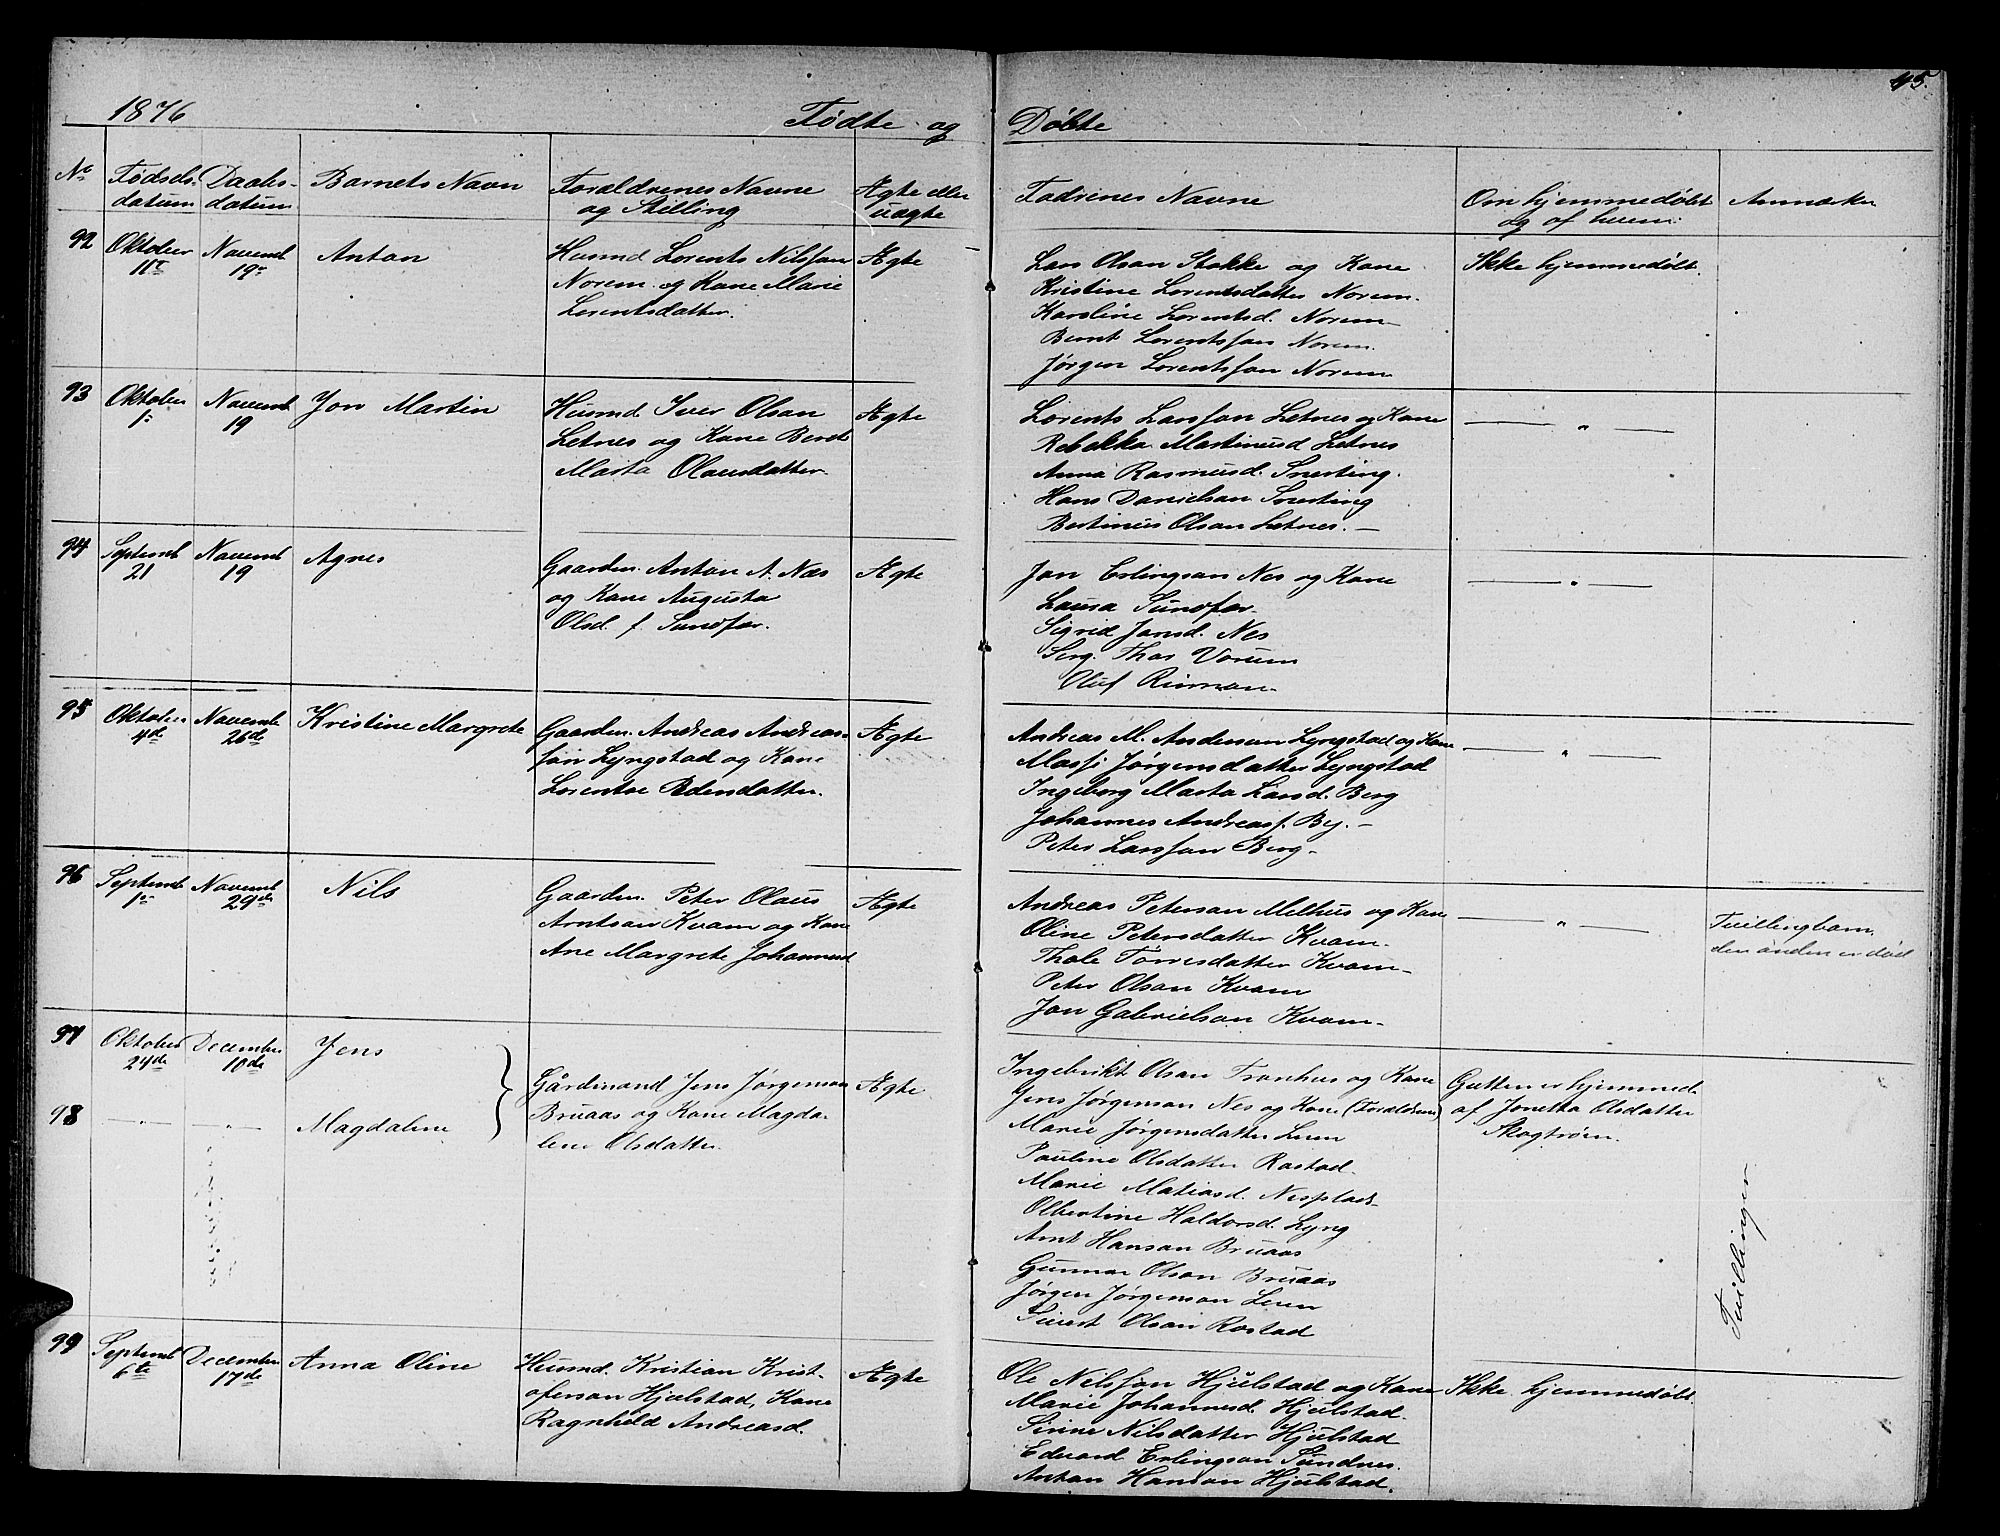 45.
1876 Fødte og Døbte
No Fødsels-datum Daabs-datum Barnets Navn Forældrenes Navne og Stilling Ægte eller uægte Fadrenes Navne Om hjemmedøbt og af hvem: Anmærkn
92 Oktober 11te Novembr 19de Anton
Husmd Lorents Nilsson
Norem og Kone Marie
Lorentsdatter.
Ægte
Lars Olsan Stokke og Kone
Kristine Lorentsdatter Norem.
Karoline Lorentsd. Norem
Bernt Lorentsson Norem.
Jørgen Lorentsson Norem
Ikke hjemmedøbt.
93 Oktober 1. Novembr 19 Jon Martin
Husmd. Iver Olsan
Letnes og Kone Beret
Marta Olausdatter.
Ægte
Lorents Larsson Letnes og Kone
Rebekka Martinusd Letnes
Anna Rasmusd. Snerting.
Hans Danielsan Snerting
Bertinus Olsan Letnes. —
— " —
94 Septembr 21 Novembr 19 Agnes
Gaarden. Anton A. Næs
og Kone Augusta
Olsd. f. Sundfær.
Ægte
Jon Erlingsan Nes og Kone
Laura Sundfær.
Sigrid Jonsd. Nes
Serg. Thor Vorum
Oluf Rinnan.
— " —
95 Oktober 4de Novembr 26de Kristine Margrete
Gaarden. Andreas Andreas-
søn Lyngstad og Kone
Lorentse Pedersdatter.
Ægte
Andreas M. Andersan Lyngstad og Kone
Massi Jørgensdatter Lyngstad
Ingeborg Marta Larsd. Berg
Johannes Andreass. By. —
Peter Larsson Berg —
— " —
96 Septembr 1. Novembr 29de Nils
Gaarden. Peter Olaus
Arntsan Kvam og Kone
Ane Margrete Johannesd
Ægte
Andreas Petersan Melhus og Kone
Oline Petersdatter Kvam.
Thale Torresdatter Kvam —
Peter Olsan Kvam
Jon Gabrielsan Kvam —
— " —
Tvillingbarn,
den anden er død
97 Oktober 24de December 10de Jens
98 — " — — " — Magdalene
Gårdmand Jens Jørgensan
Bruaas og Kone Magda-
lene Olsdatter.
Ægte
Ingebrikt Olsan Tronhus og Kone
Jens Jørgensan Nes og Kone (Forældrene)
Marie Jørgensdatter Leren
Pauline Olsdatter Rostad.
Marie Matiasd. Nesplads
Olbertine Haldorsd. Lyng
Arnt Hansan Bruaas
Gunnar Olsan Bruaas
Jørgen Jørgensan Leren
Sivert Olsan Rostad
Gutten er hjemmed.
af Jonetta Olsdatter
Skogtrøen.
Tvillinger
99 Septembr 6te December 17de Anna Oline
Husmd. Kristian Krist-
ofersan Hjulstad, Kone
Ragnhild Andreasd.
Ægte
Ole Nilsson Hjulstad og Kone
Marie Johannesd. Hjulstad.
Sirine Nilsdatter Hjulstad
Edvard Erlingsan Sundnes.
Anton Hansan Hjulstad.
Ikke hjemmedøbt.